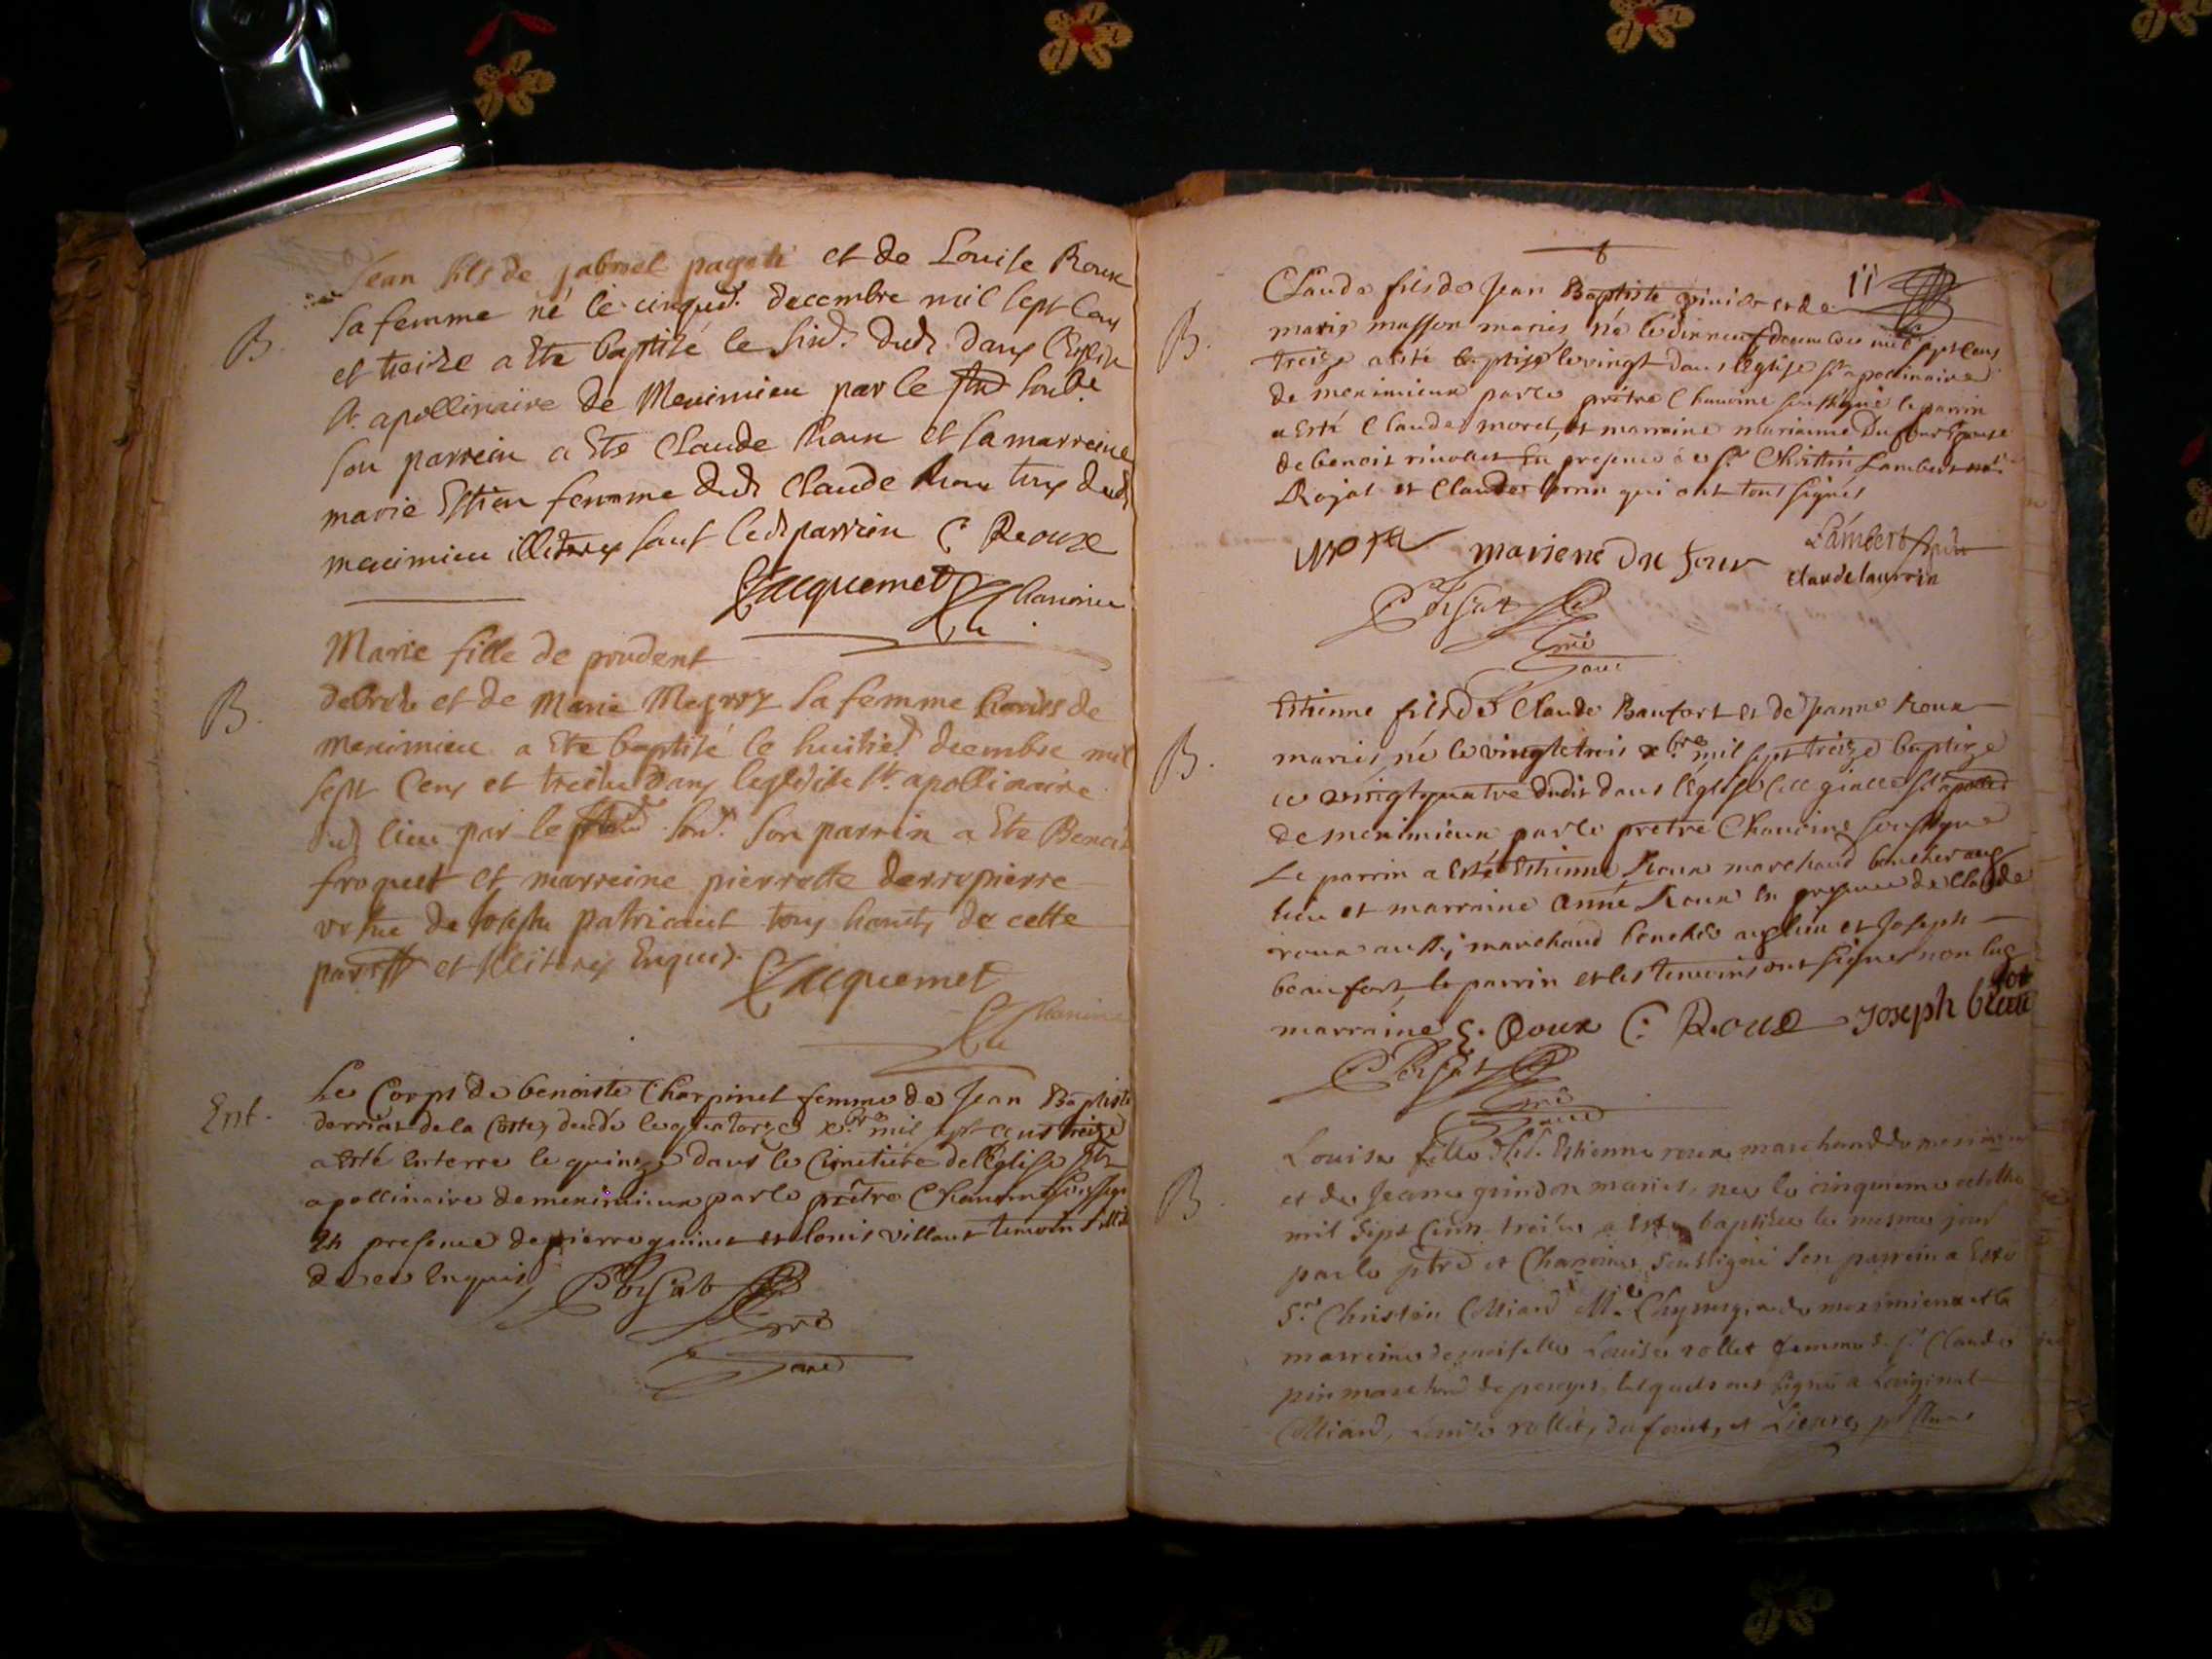 Jean fils de gabriel et de Louise Roux
B. sa femme né le cinqu.e decembre mil sept Cens
et treize a Eté baptisé le six.e dud. dans l'Eglise
St. apollinaire de Meximieu par le soub.é
son parrein a Eté Claude Roux et sa marreine
marie Estien femme dud. Claude Roux tous dud.
meximieu illiteres sauf led. parrien C Rouxe
Jacquemet Chanoine
Marie fille de prudent
B. et de Marie sa femme de
Meximieu a Ete baptisé le huitie. decembre mil
sept Cens et treize dans leglise St. apollinaire
dud. lieu par le sous. son parrin a Ete Benoit
froquet et marreine pierrette derropierre
de Joseph patricaut tous de cette
paroisse et illiterez Enquis.
Jacquemet
Chanoine
Ent. Le Corps de benoiste Charpinet femme de Jean Baptiste
derriat de la Coste, decedé le quatorze x.bre mil sept cens treize
a esté enterré le quinze dans le Cimetiére de l'Eglise St
apollinaire de meximieux par le prêtre Chanoine soussigné
En presence de pierre guinet et louis villaut temoin
de ce enquis
Persat
ptre
Chan
11
Claude fils de Jean Baptiste vinier et de
B. marie masson mariés né le dixneuf decembre mil sept cens
treize a esté baptisé le vingt dans l'Eglise St apollinaire
de meximieux par le prêtre Chanoine soussigné le parrin
a Esté Claude moret, et marraine marianne Dufour Epouse
de benoit rivollet En presence de Sr. Christin Lambert
Rojat et Claude lorrin qui ont tous signés
Moret mariene du four Lambert
Claude laurrin
Persat
ptre
Chan
Estienne fils de Claude Baufort et de Jeanne Roux
B. mariés, né le vingt et trois x.bre mil sept treize baptizé
le vingtquatre dudit dans l'Eglise Collegialle St apolli.
de meximieux par le prêtre Chanoine soussigné
Le parrin a esté Estienne Roux marchand boucher aud.
lieu et marraine anne Roux En presence de Claude
roux aussy marchand boucher aud. lieu et Joseph
beaufort, le parrin et les temoins ont signés non la
marraine E. Roux C. Roux Joseph beaufort
Persat
ptre
Chan
Louise fille de Sr. Estienne roux marchand de meximieux
B. et de Jeanne grindon mariés, nee le cinquieme octobre
mil sept Cens treize a Este baptizee le mesme jour
par le ptre et Chanoine soussigné son parrein a Este
Sr. Christin Colliard Me. Chyrurgien de meximieux et la
marreine demoiselle Louise rollet femme de Sr. Claude
pin marchand de peroges, lesquels ont signé a L'original
Colliard, Louise rollet, dufour, et Lievre,